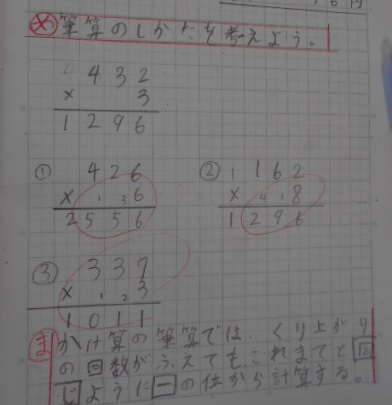 め 筆算のしかたを考えよう。
432
× 3
1296
① 426
× 1 3 6
2556
② 162
× 4 1 8
1296
③ 337
× 1 2 3
1011
ま かけ算の筆算では、くり上がり
の回数がふえてもこれまでと同
じように一の位から計算する。